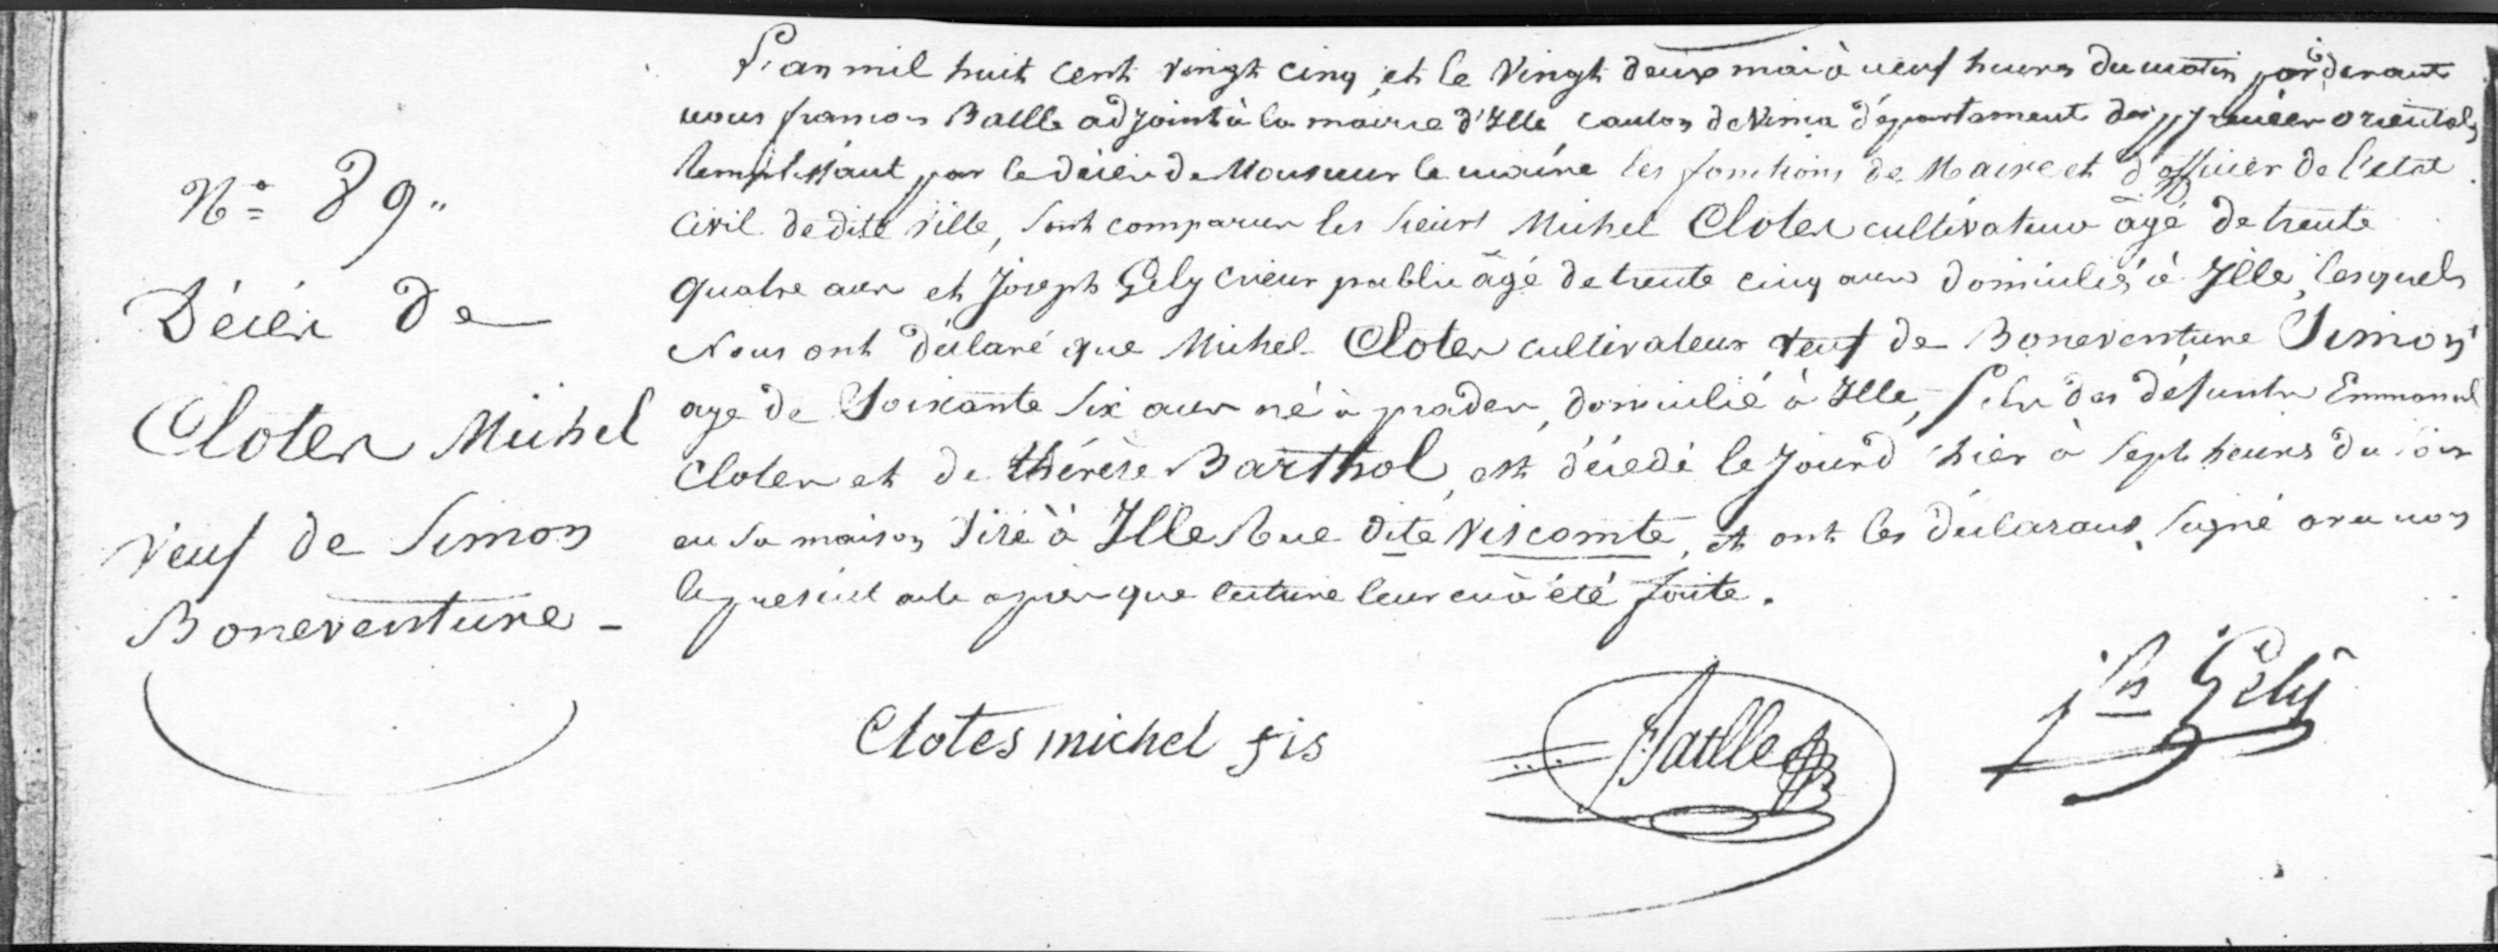 N.° 39.
Décès de
Clotes Michel
Veuf de Simon
Boneventure -
L'an mil huit cent vingt cinq, et le Vingt deux mai à neuf heures du matin par devant
nous françois Batlle adjoint à la mairie d'Ille canton de Vinça département des pyrénées orientales
remplissant par le décès de Monsieur le maire les fonctions de Maire et d'officier de l'etat
Civil de dite Ville, sont comparus les sieurs Michel Clotes cultivateur agé de trente
quatre ans et Joseph Gély crieur public âgé de trente cinq ans domicilié à Ille, lesquels
Nous ont déclaré que Michel Clotes cultivateur veuf de Boneventure Simon
age de Soixante six ans né à prades, domicilié à Ille, fils des défunts Emmanuel
Clotes et de thérèse Barthol, est décédé le jourd'hier à sept heures du soir
en sa maison sise à Ille Rue dite Viscomte, et ont les déclarans signé avec nous
le présent acte après que lecture leur en à été faite.
Clotes michel fis
Batlle
jh Gély